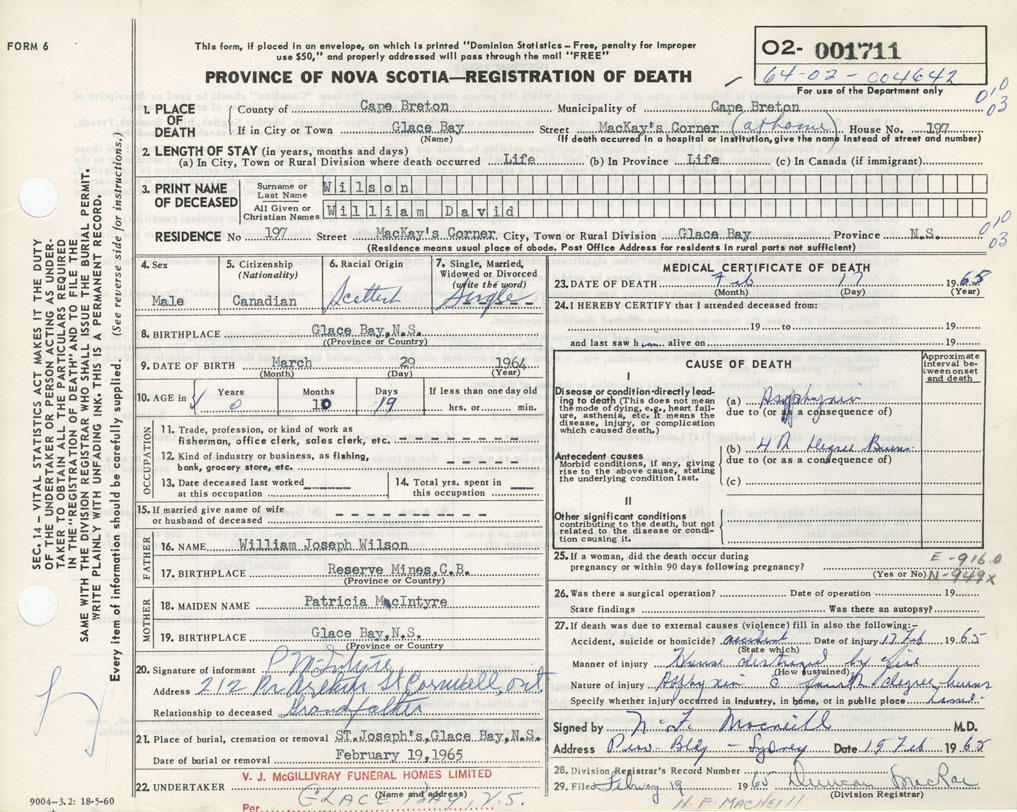 FORM 6
This form, if placed in an envelope, on which is printed "Dominion Statistics – Free, penalty for improper
use $50," and properly addressed will pass through the mail "FREE"
PROVINCE OF NOVA SCOTIA—REGISTRATION OF DEATH
02- 001711
64-02-004642
For use of the Department only
010
03
1. PLACE OF DEATH
County of Cape Breton Municipality of Cape Breton
If in City or Town Glace Bay Street MacKay's Corner (at home) House No. 197
(Name) (If death occurred in a hospital or institution, give the name instead of street and number)
2. LENGTH OF STAY (in years, months and days)
(a) In City, Town or Rural Division where death occurred Life (b) In Province Life (c) In Canada (if immigrant)
3. PRINT NAME OF DECEASED
Surname or Last Name Wilson
All Given or Christian Names William David
010
03
RESIDENCE No 197 Street MacKay's Corner City, Town or Rural Division Glace Bay Province N.S.
(Residence means usual place of abode. Post Office Address for residents in rural parts not sufficient)
4. Sex Male
5. Citizenship (Nationality) Canadian
6. Racial Origin Scottish
7. Single, Married, Widowed or Divorced (write the word) Single
8. BIRTHPLACE Glace Bay, N.S.
(Province or Country)
9. DATE OF BIRTH March 29 1964
(Month) (Day) (Year)
10. AGE in Years 0 Months 10 Days 19 If less than one day old hrs. or min.
OCCUPATION
11. Trade, profession, or kind of work as
fisherman, office clerk, sales clerk, etc.
12. Kind of industry or business, as fishing,
bank, grocery store, etc.
13. Date deceased last worked at this occupation
14. Total yrs. spent in this occupation
15. If married give name of wife
or husband of deceased
FATHER
16. NAME William Joseph Wilson
17. BIRTHPLACE Reserve Mines, C.B.
(Province or Country)
MOTHER
18. MAIDEN NAME Patricia MacIntyre
19. BIRTHPLACE Glace Bay, N.S.
(Province or Country
20. Signature of informant P McIntyre
Address 212 Pr Arthur St Cornwall, Ont
Relationship to deceased Grandfather
21. Place of burial, cremation or removal ST. Joseph's, Glace Bay, N.S.
Date of burial or removal February 19, 1965
V. J. McGILLIVRAY FUNERAL HOMES LIMITED
22. UNDERTAKER
(Name and address)
GLACE BAY, N.S.
Per
MEDICAL CERTIFICATE OF DEATH
23. DATE OF DEATH Feb 17 1965
(Month) (Day) (Year)
24. I HEREBY CERTIFY that I attended deceased from:
19 to 19
and last saw him alive on 19
CAUSE OF DEATH
Approximate interval between onset and death
I
Disease or condition directly leading to death (This does not mean the mode of dying, e.g., heart failure, asthenia, etc. It means the disease, injury, or complication which caused death.)
(a) Asphyxia
due to (or as a consequence of)
Antecedent causes
Morbid conditions, if any, giving rise to the above cause, stating the underlying condition last.
(b) 4th Degree Burns
due to (or as a consequence of)
(c)
II
Other significant conditions
contributing to the death, but not related to the disease or condition causing it.
25. If a woman, did the death occur during
pregnancy or within 90 days following pregnancy?
(Yes or No)
E-916.0
N-949x
26. Was there a surgical operation? Date of operation 19
State findings Was there an autopsy?
27. If death was due to external causes (violence) fill in also the following:
Accident, suicide or homicide? accident Date of injury 17 Feb 1965
(State which)
Manner of injury House destroyed by fire
(How sustained)
Nature of injury Asphyxia & fourth degree burns
Specify whether injury occurred in industry, in home, or in public place home
Signed by N. F. Macneill M.D.
Address Prov. Bldg - Sydney Date 19 Feb 1965
28. Division Registrar's Record Number
29. Filed February 19 1965 Duncan MacRae
(Division Registrar)
N F MACNEILL
SEC. 14 – VITAL STATISTICS ACT MAKES IT THE DUTY
OF THE UNDERTAKER OR PERSON ACTING AS UNDER-
TAKER TO OBTAIN ALL THE PARTICULARS REQUIRED
IN THE "REGISTRATION OF DEATH" AND TO FILE THE
SAME WITH THE DIVISION REGISTRAR WHO SHALL ISSUE THE BURIAL PERMIT.
WRITE PLAINLY WITH UNFADING INK. THIS IS A PERMANENT RECORD.
Every item of information should be carefully supplied. (See reverse side for instructions.)
9004-3.2: 18-5-60